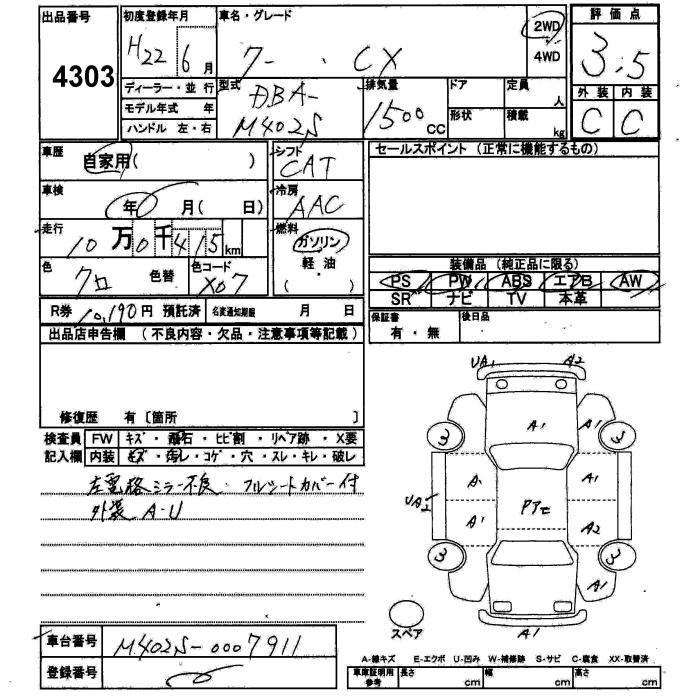 出品番号 4303
初度登録年月 H22 6月
車名・グレード ア- . CX
2WD
4WD
評価点 3.5
外装 内装
C C
ディーラー・並行
モデル年式 年
ハンドル 左・右
型式 DBA-
M402S
排気量 1500cc
ドア
形状
定員 人
積載 kg
車歴 自家用( )
シフト CAT
車検 年 月( 日)
冷房 AAC
走行 10万0千415km
燃料 ガソリン
軽油
( )
色 クロ 色替 色コード X07
R券 10,190円 預託済 名変通知期限 月 日
セールスポイント (正常に機能するもの)
装備品 (純正品に限る)
PS PW ABS エアB AW
SR ナビ TV 本革
保証書 有・無 後日品
出品店申告欄 (不良内容・欠品・注意事項等記載)
修復歴 有〔箇所 〕
検査員 FW キズ・飛石・ヒビ割・リペア跡・X要
記入欄 内装 キズ・汚レ・コゲ・穴・スレ・キレ・破レ
左電格ミラー不良 フルシートカバー付
外装 A-U
UA1 A2
A1 A1
3 3
A1 A1
UA2
A1 A2
3 3
A1
A1
スペア
車台番号 M402S-0007911
登録番号
A-線キズ E-エクボ U-凹み W-補修跡 S-サビ C-腐食 XX-取替済
車庫証明用参考 長さ cm 幅 cm 高さ cm